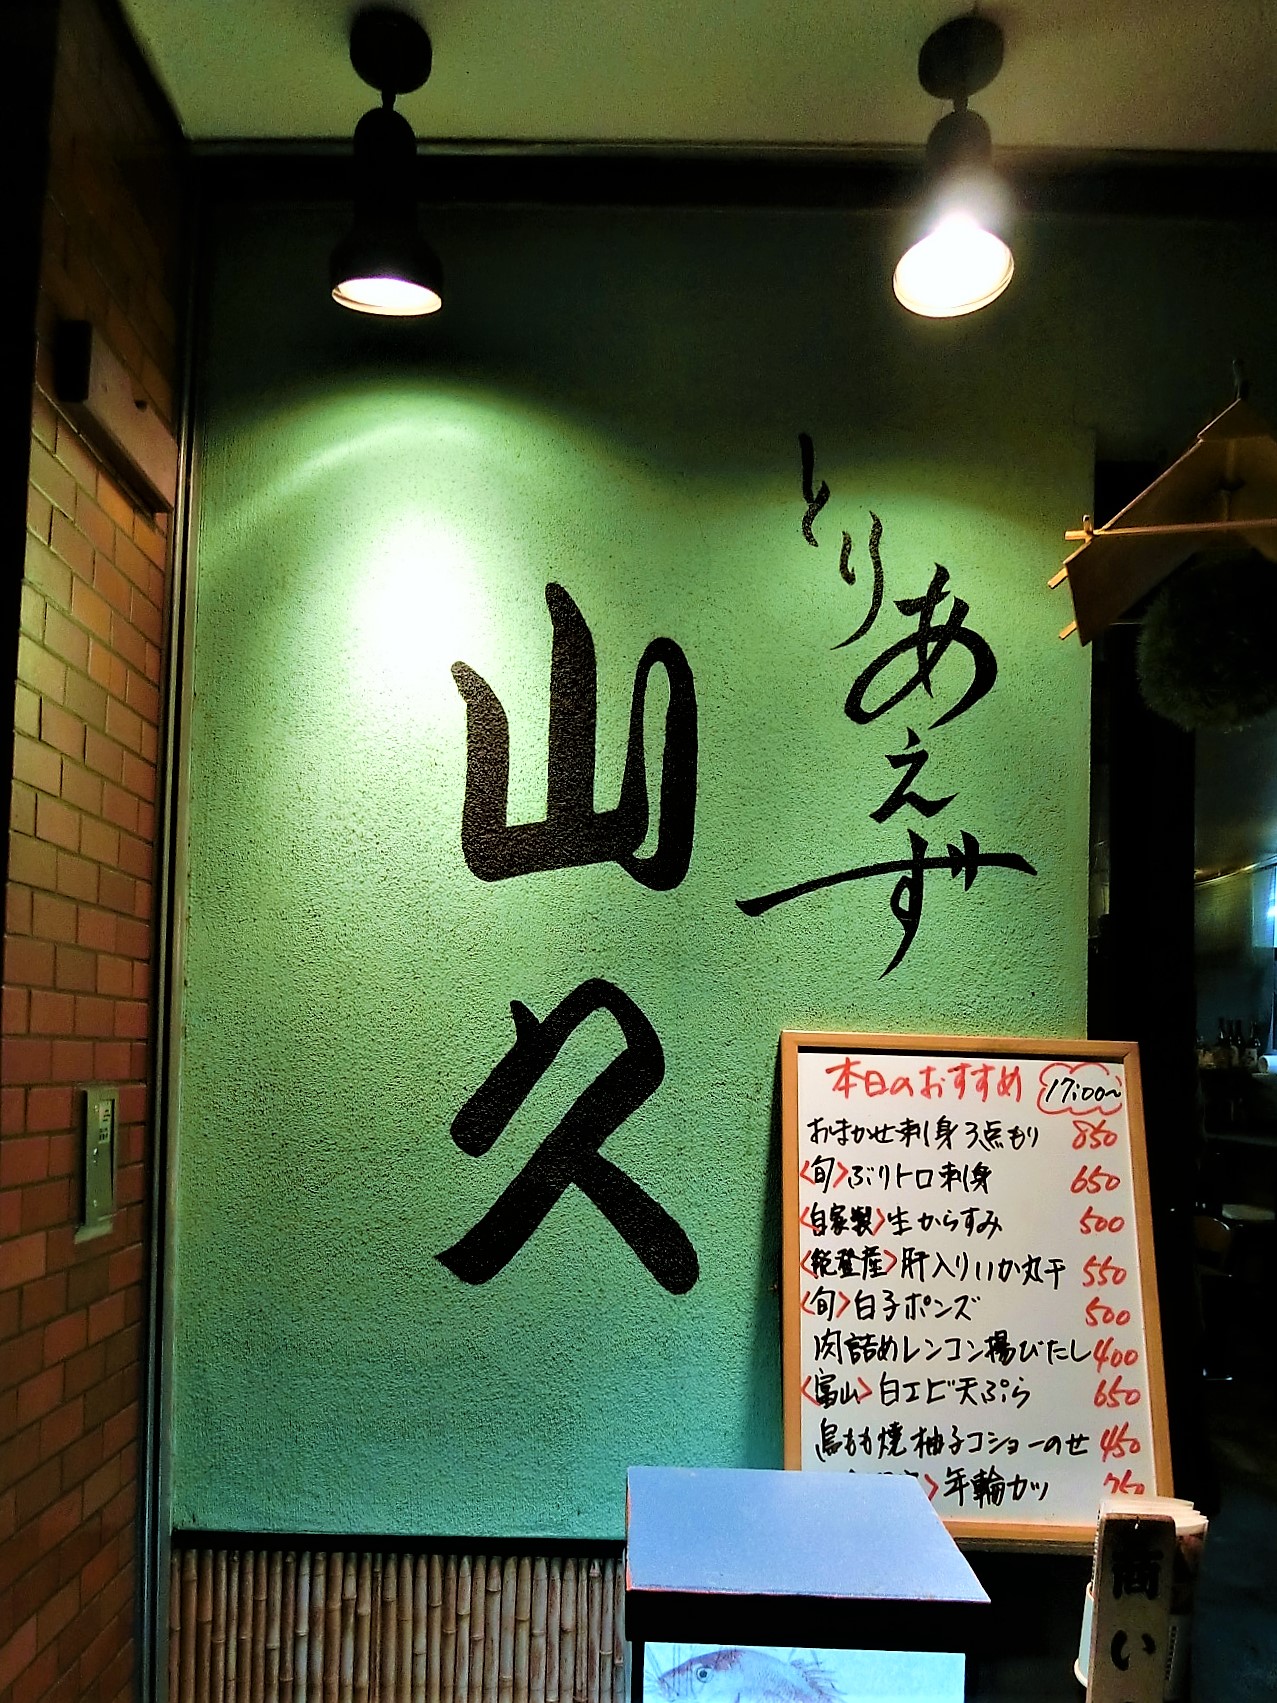 とりあえず
山久
本日のおすすめ 17:00～
おまかせ刺身3点もり 850
<旬>ぶりトロ刺身 650
<自家製>生からすみ 500
<能登産>肝入りいか丸干 550
<旬>白子ポンズ 500
肉詰めレンコン揚びたし 400
<富山>白エビ天ぷら 650
鳥もも焼柚子コショーのせ 450
>年輪カツ 750
商い